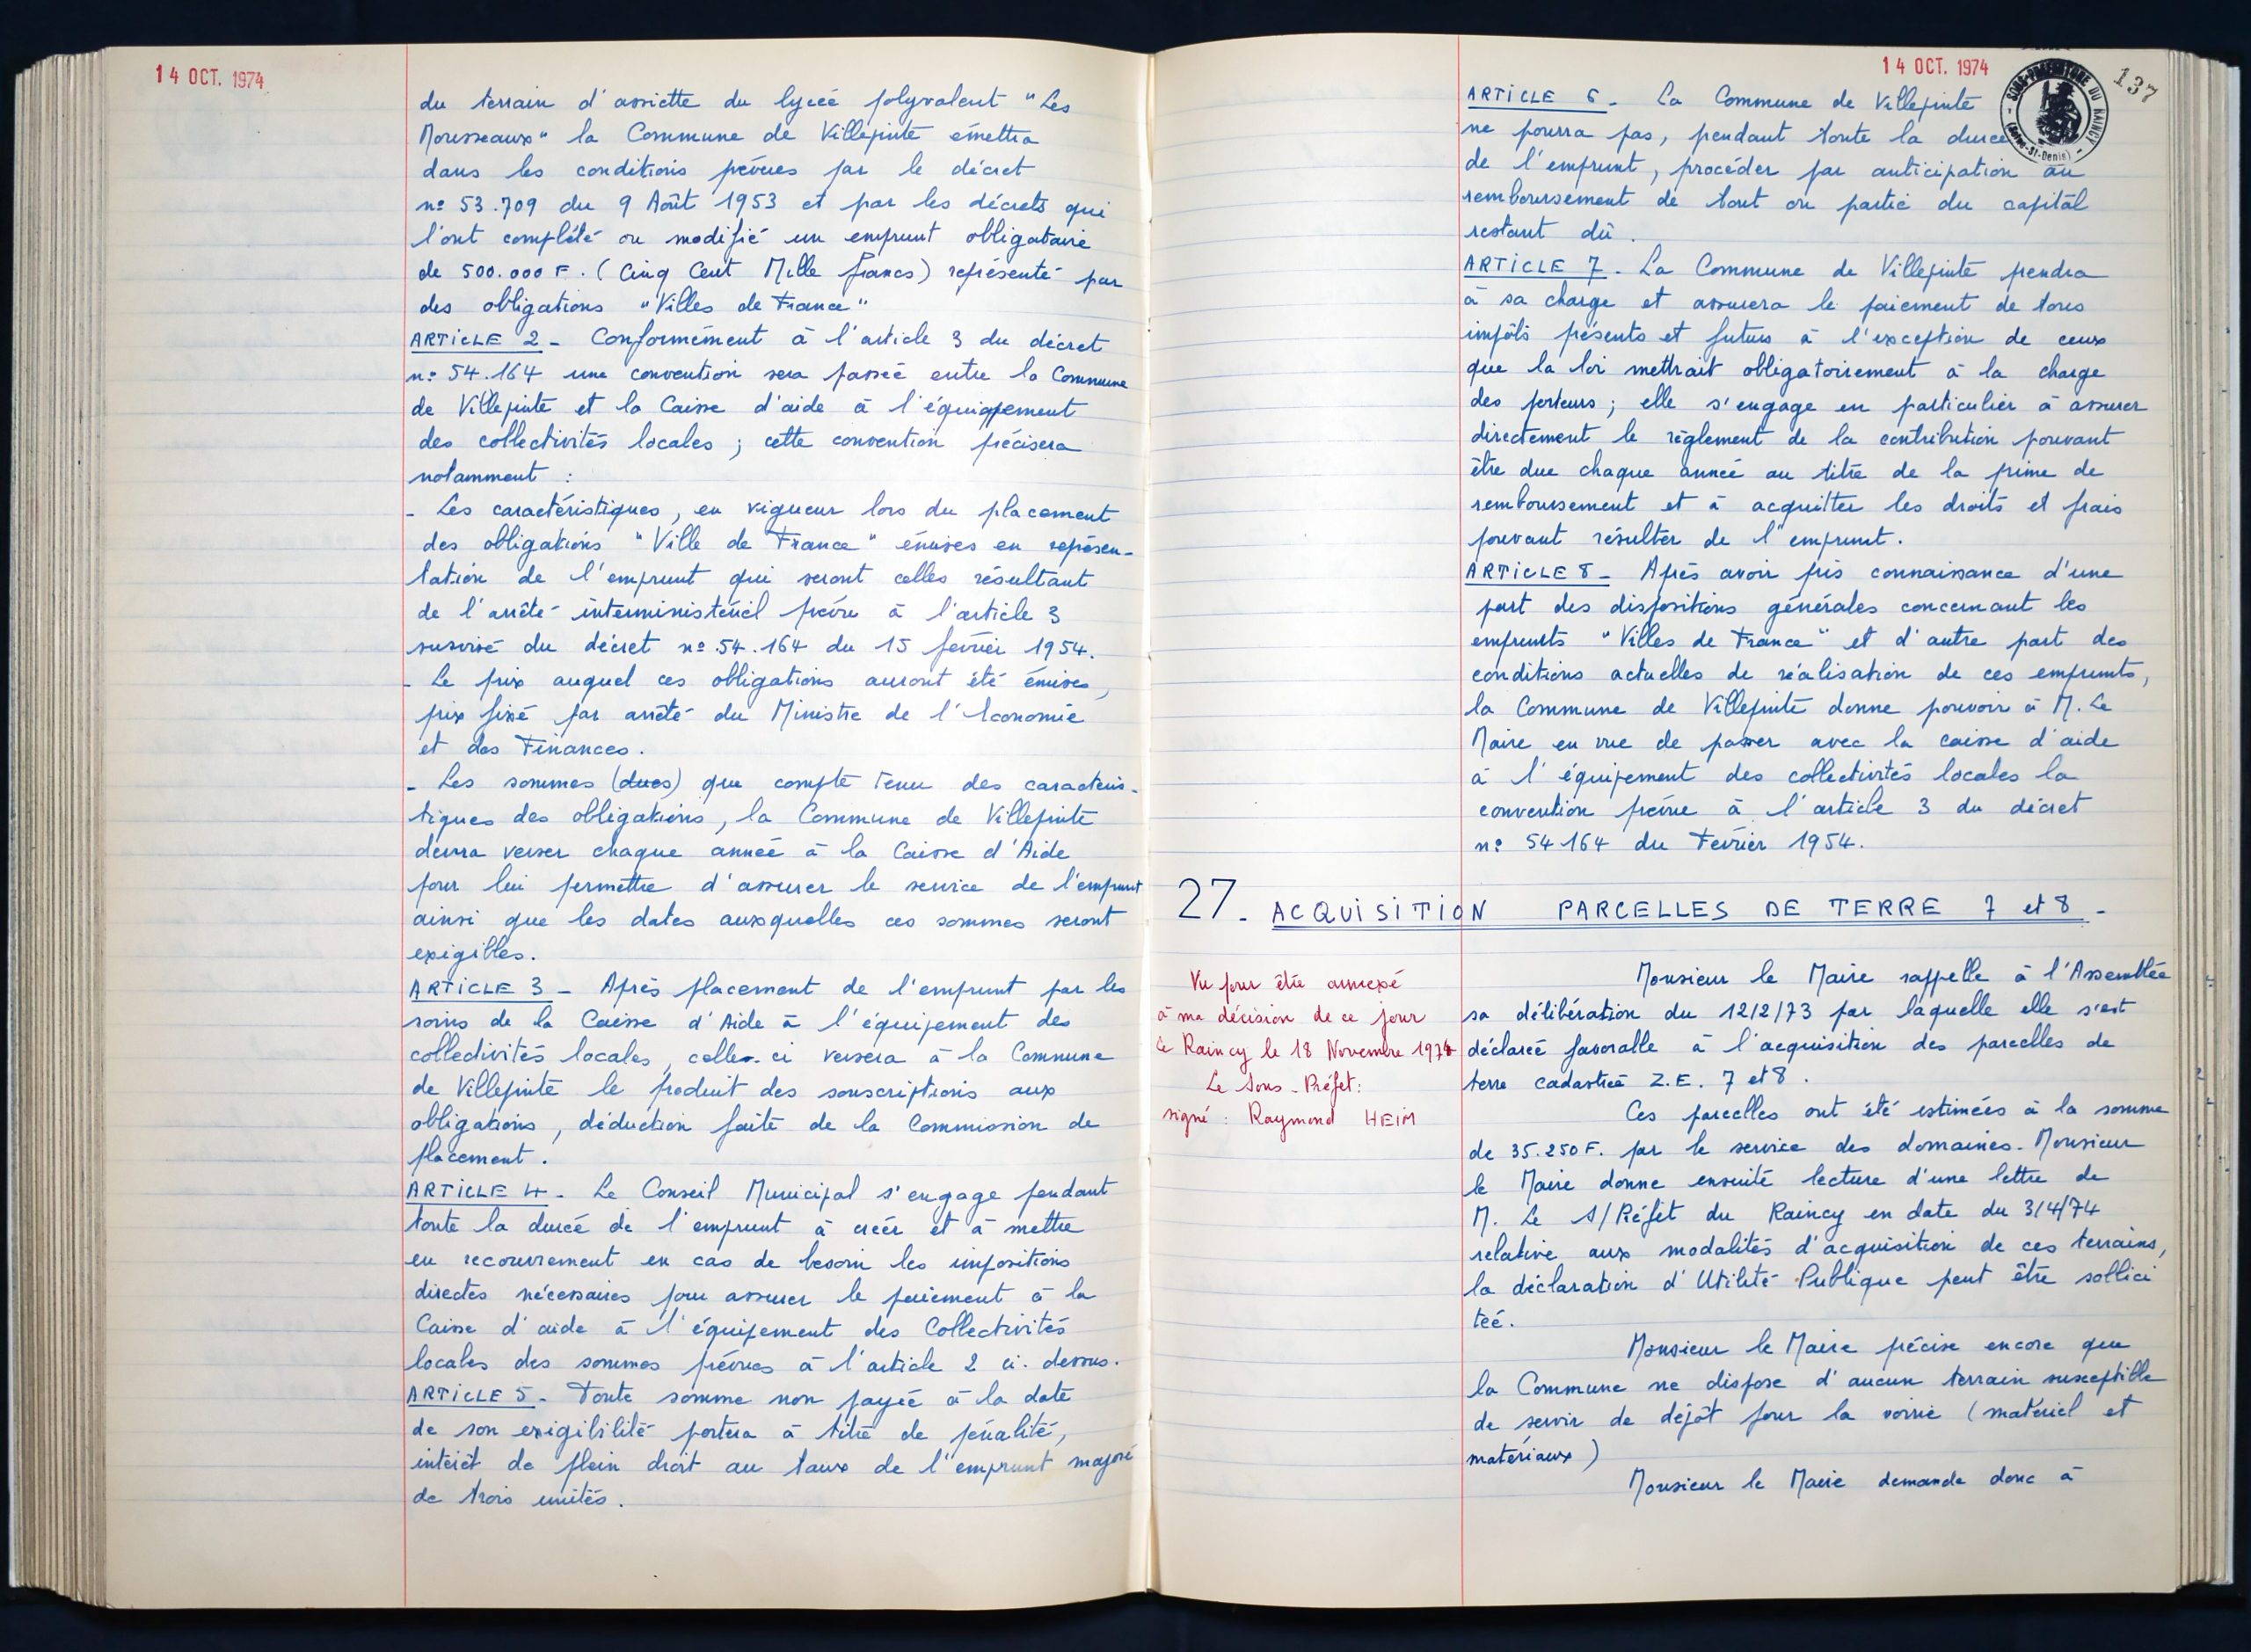 14 OCT. 1974
du terrain d'assiette du lycée polyvalent "Les
Mousseaux" la Commune de Villepinte émettra
dans les conditions prévues par le décret
n° 53.709 du 9 Août 1953 et par les décrets qui
l'ont complété ou modifié un emprunt obligataire
de 500.000 F. (Cinq Cent Mille francs) représenté par
des obligations "Villes de France"
ARTICLE 2 - Conformément à l'article 3 du décret
n° 54.164 une convention sera passée entre la Commune
de Villepinte et la Caisse d'aide à l'équippement
des collectivités locales ; cette convention précisera
notamment :
- Les caractéristiques, en vigueur lors du placement
des obligations "Ville de France" émises en représen-
tation de l'emprunt qui seront celles résultant
de l'arrêté interministériel prévu à l'article 3
susvisé du décret n° 54.164 du 15 février 1954.
- Le prix auquel ces obligations auront été émises,
prix fixé par arrêté du Ministre de l'Economie
et des Finances.
- Les sommes (dues) que compte tenu des caractéris-
tiques des obligations, la Commune de Villepinte
devra verser chaque année à la Caisse d'Aide
pour lui permettre d'assurer le service de l'emprunt
ainsi que les dates auxquelles ces sommes seront
exigibles.
ARTICLE 3 - Après placement de l'emprunt par les
soins de la Caisse d'Aide à l'équipement des
collectivités locales, celle-ci versera à la Commune
de Villepinte le produit des souscriptions aux
obligations, déduction faite de la Commission de
placement.
ARTICLE 4 - Le Conseil Municipal s'engage pendant
toute la durée de l'emprunt à créer et à mettre
en recouvrement en cas de besoin les impositions
directes nécessaires pour assurer le paiement à la
Caisse d'aide à l'équipement des Collectivités
locales des sommes prévues à l'article 2 ci-dessus.
ARTICLE 5 - Toute somme non payée à la date
de son exigibilité portera à titre de pénalité,
intérêt de plein droit au taux de l'emprunt majoré
de trois unités.
14 OCT. 1974
137
SOUS-PREFECTURE DU RAINCY
(Seine-St-Denis)
ARTICLE 6 - La Commune de Villepinte
ne pourra pas, pendant toute la durée
de l'emprunt, procéder par anticipation au
remboursement de tout ou partie du capital
restant dû.
ARTICLE 7 - La Commune de Villepinte prendra
à sa charge et assurera le paiement de tous
impôts présents et futurs à l'exception de ceux
que la loi mettrait obligatoirement à la charge
des porteurs ; elle s'engage en particulier à assurer
directement le règlement de la contribution pouvant
être due chaque année au titre de la prime de
remboursement et à acquitter les droits et frais
pouvant résulter de l'emprunt.
ARTICLE 8 - Après avoir pris connaissance d'une
part des dispositions générales concernant les
emprunts "Villes de France" et d'autre part des
conditions actuelles de réalisation de ces emprunts,
la Commune de Villepinte donne pouvoir à M. Le
Maire en vue de passer avec la caisse d'aide
à l'équipement des collectivités locales la
convention prévue à l'article 3 du décret
n° 54 164 du Février 1954.
27. ACQUISITION PARCELLES DE TERRE 7 et 8 -
Vu pour être annexé
à ma décision de ce jour
Le Raincy le 18 Novembre 1974
Le Sous-Préfet :
signé : Raymond HEIM
Monsieur le Maire rappelle à l'Assemblée
sa délibération du 12/2/73 par laquelle elle s'est
déclarée favorable à l'acquisition des parcelles de
terre cadastrée Z.E. 7 et 8.
Ces parcelles ont été estimées à la somme
de 35.250 F. par le service des domaines. Monsieur
le Maire donne ensuite lecture d'une lettre de
M. Le S/Préfet du Raincy en date du 3/4/74
relative aux modalités d'acquisition de ces terrains,
la déclaration d'Utilité Publique peut être sollici
tée.
Monsieur le Maire précise encore que
la Commune ne dispose d'aucun terrain susceptible
de servir de dépôt pour la voirie (matériel et
matériaux)
Monsieur le Maire demande donc à